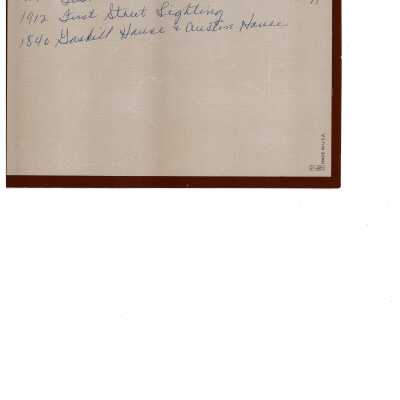 1912 First Street Lighting
1840 Gaskill House & Austin House